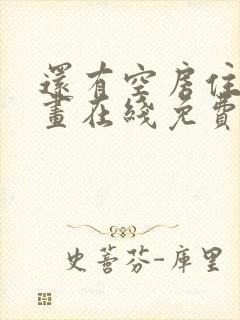 還有空房住
畫在綫免費
史蒈芬-庫里